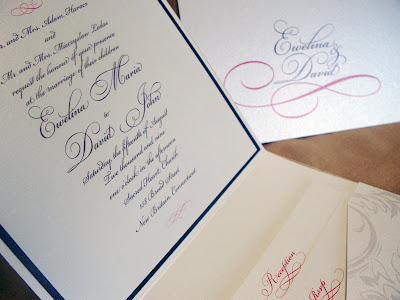 r. and Mrs. Adam Harasz
and
Mr. and Mrs. Mieczyslaw Lukas
request the honour of your presence
at the marriage of their children
Ewelina Maria
to
David John
Saturday, the fifteenth of August
Two thousand and nine
one o'clock in the afternoon
Sacred Heart Church
158 Broad Street
New Britain, Connecticut
Ewelina
&
David
Reception
Rsvp